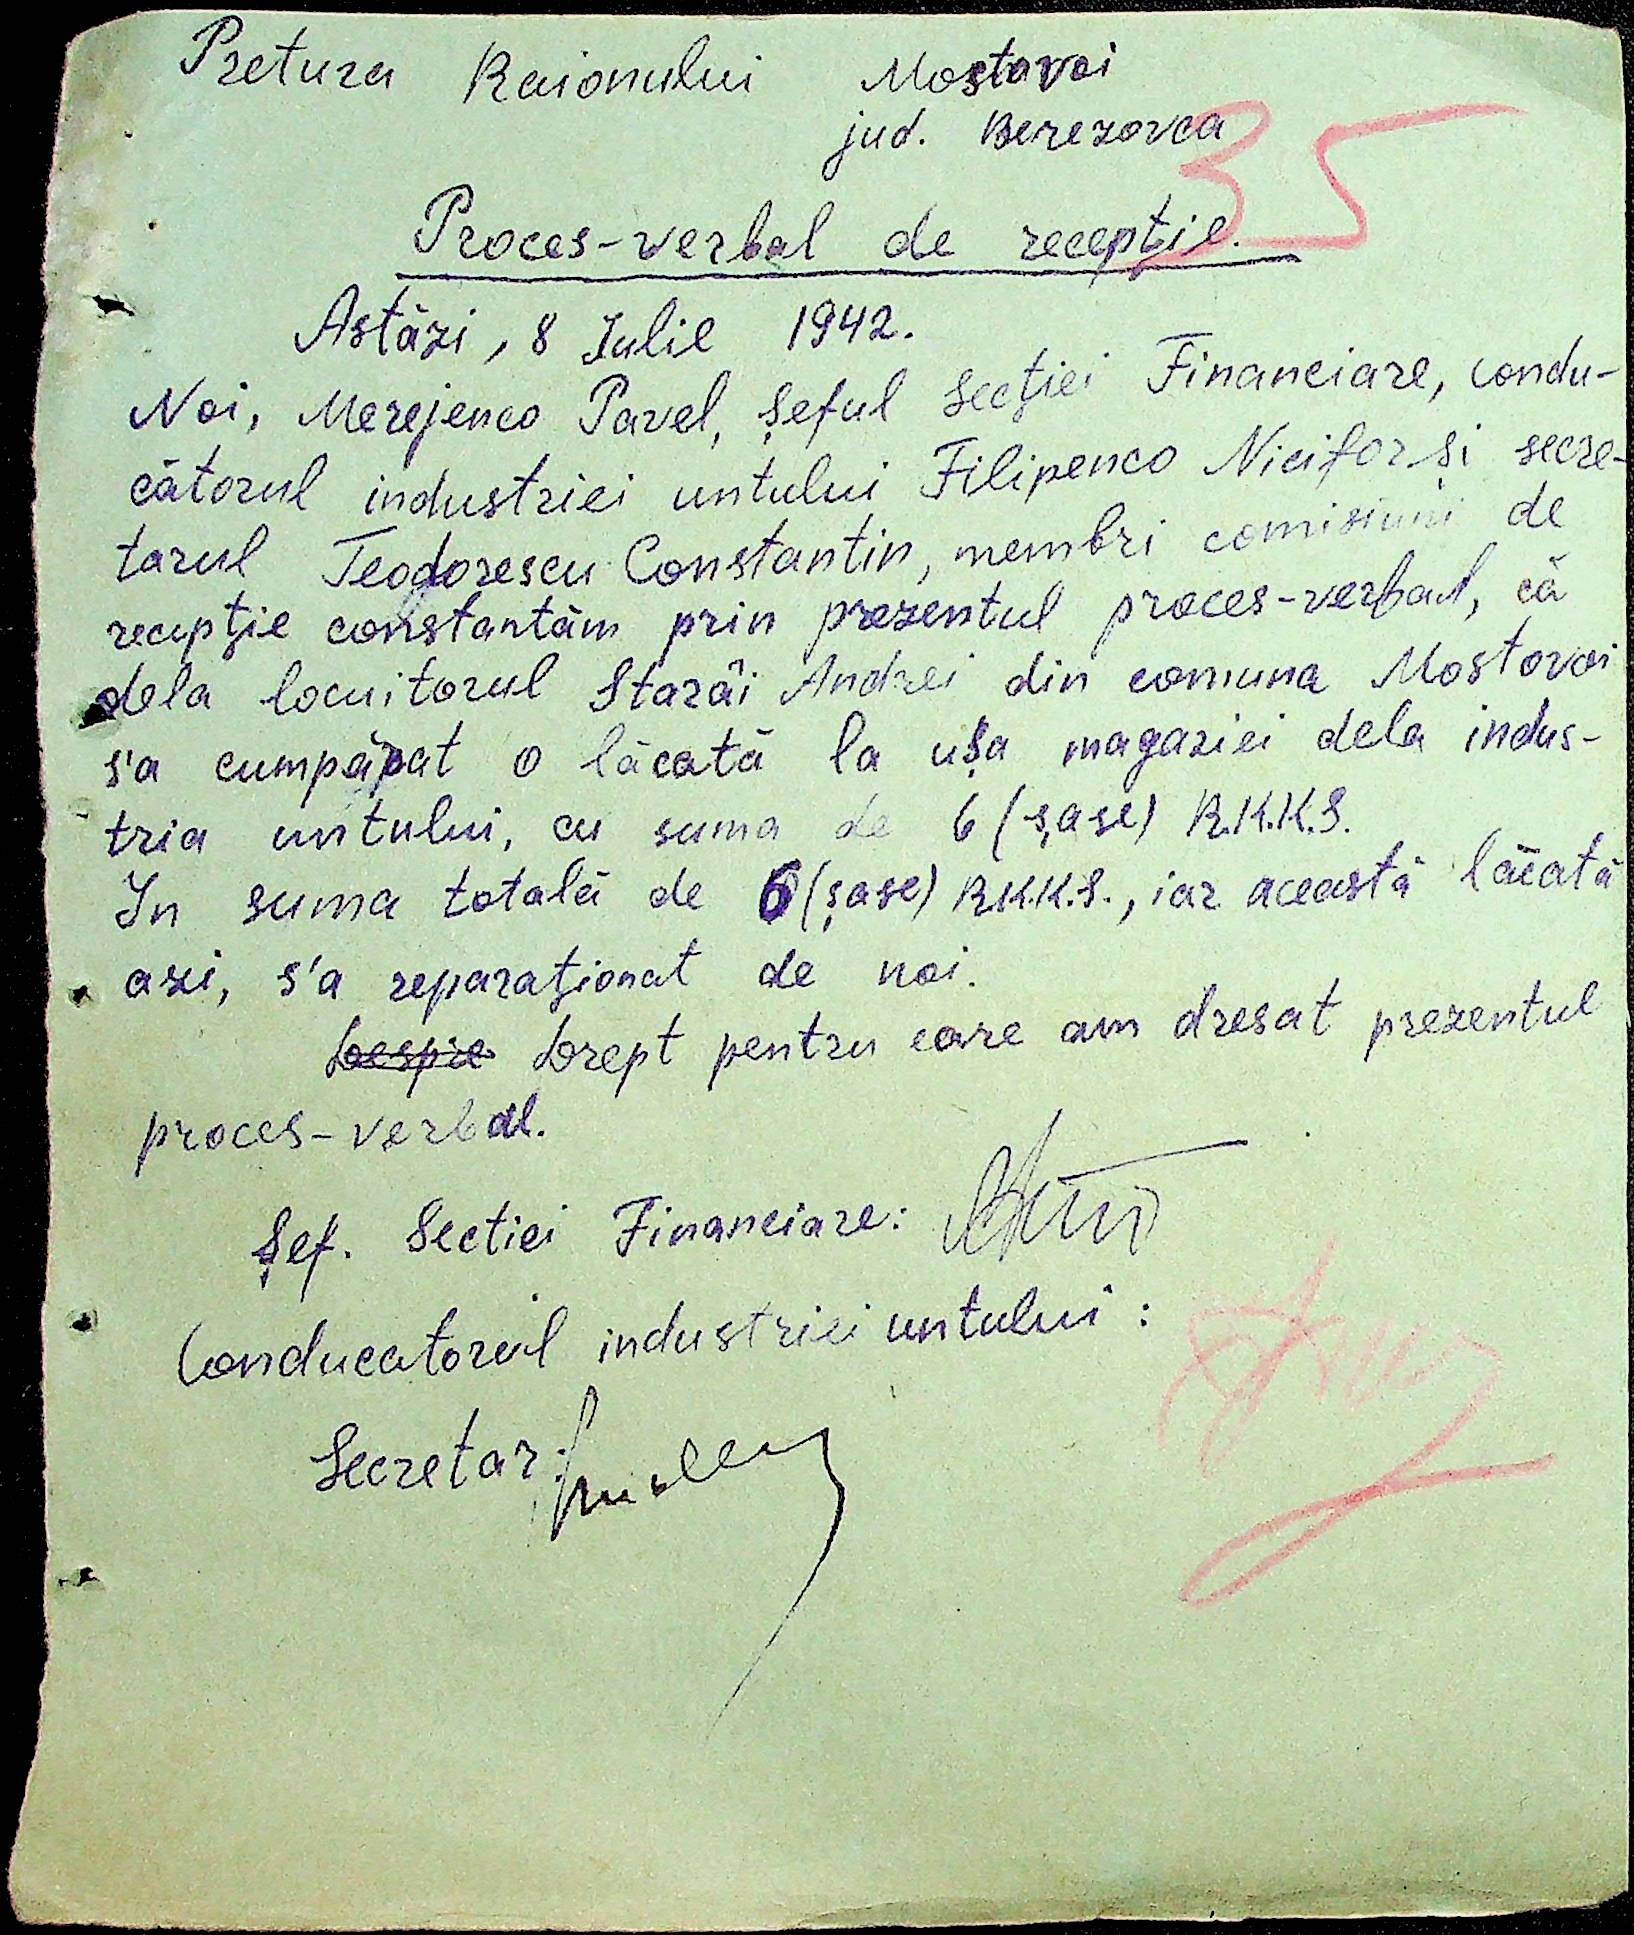 Pretura Raionului Mostovoi
jud. Berezovca
35
Proces-verbal de recepţie.
Astăzi, 8 Iulie 1942.
Noi, Merejenco Pavel, Şeful Secţiei Financiare, condu-
cătorul industriei untului Filipenco Nicifor şi secre-
tarul Teodorescu Constantin, membri comisiuni de
recepţie constantăm prin prezentul proces-verbal, că
dela locuitorul Starâi Andrei din comuna Mostovoi
s'a cumpărat o lăcată la uşa magaziei dela indus-
tria untului, cu suma de 6 (şase) R.K.K.S.
In suma totală de 6 (şase) R.K.K.S., iar această lăcată
azi, s'a reparaţionat de noi.
Despre Drept pentru care am dresat prezentul
proces-verbal.
Şef. Sectiei Financiare:
Conducatorul industriei untului:
Secretar: